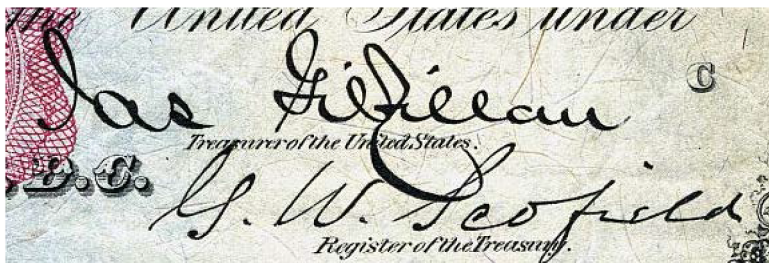 the United States under
Jas Gilfillan
C
Treasurer of the United States.
D.C.
G. W. Scofield
Register of the Treasury.